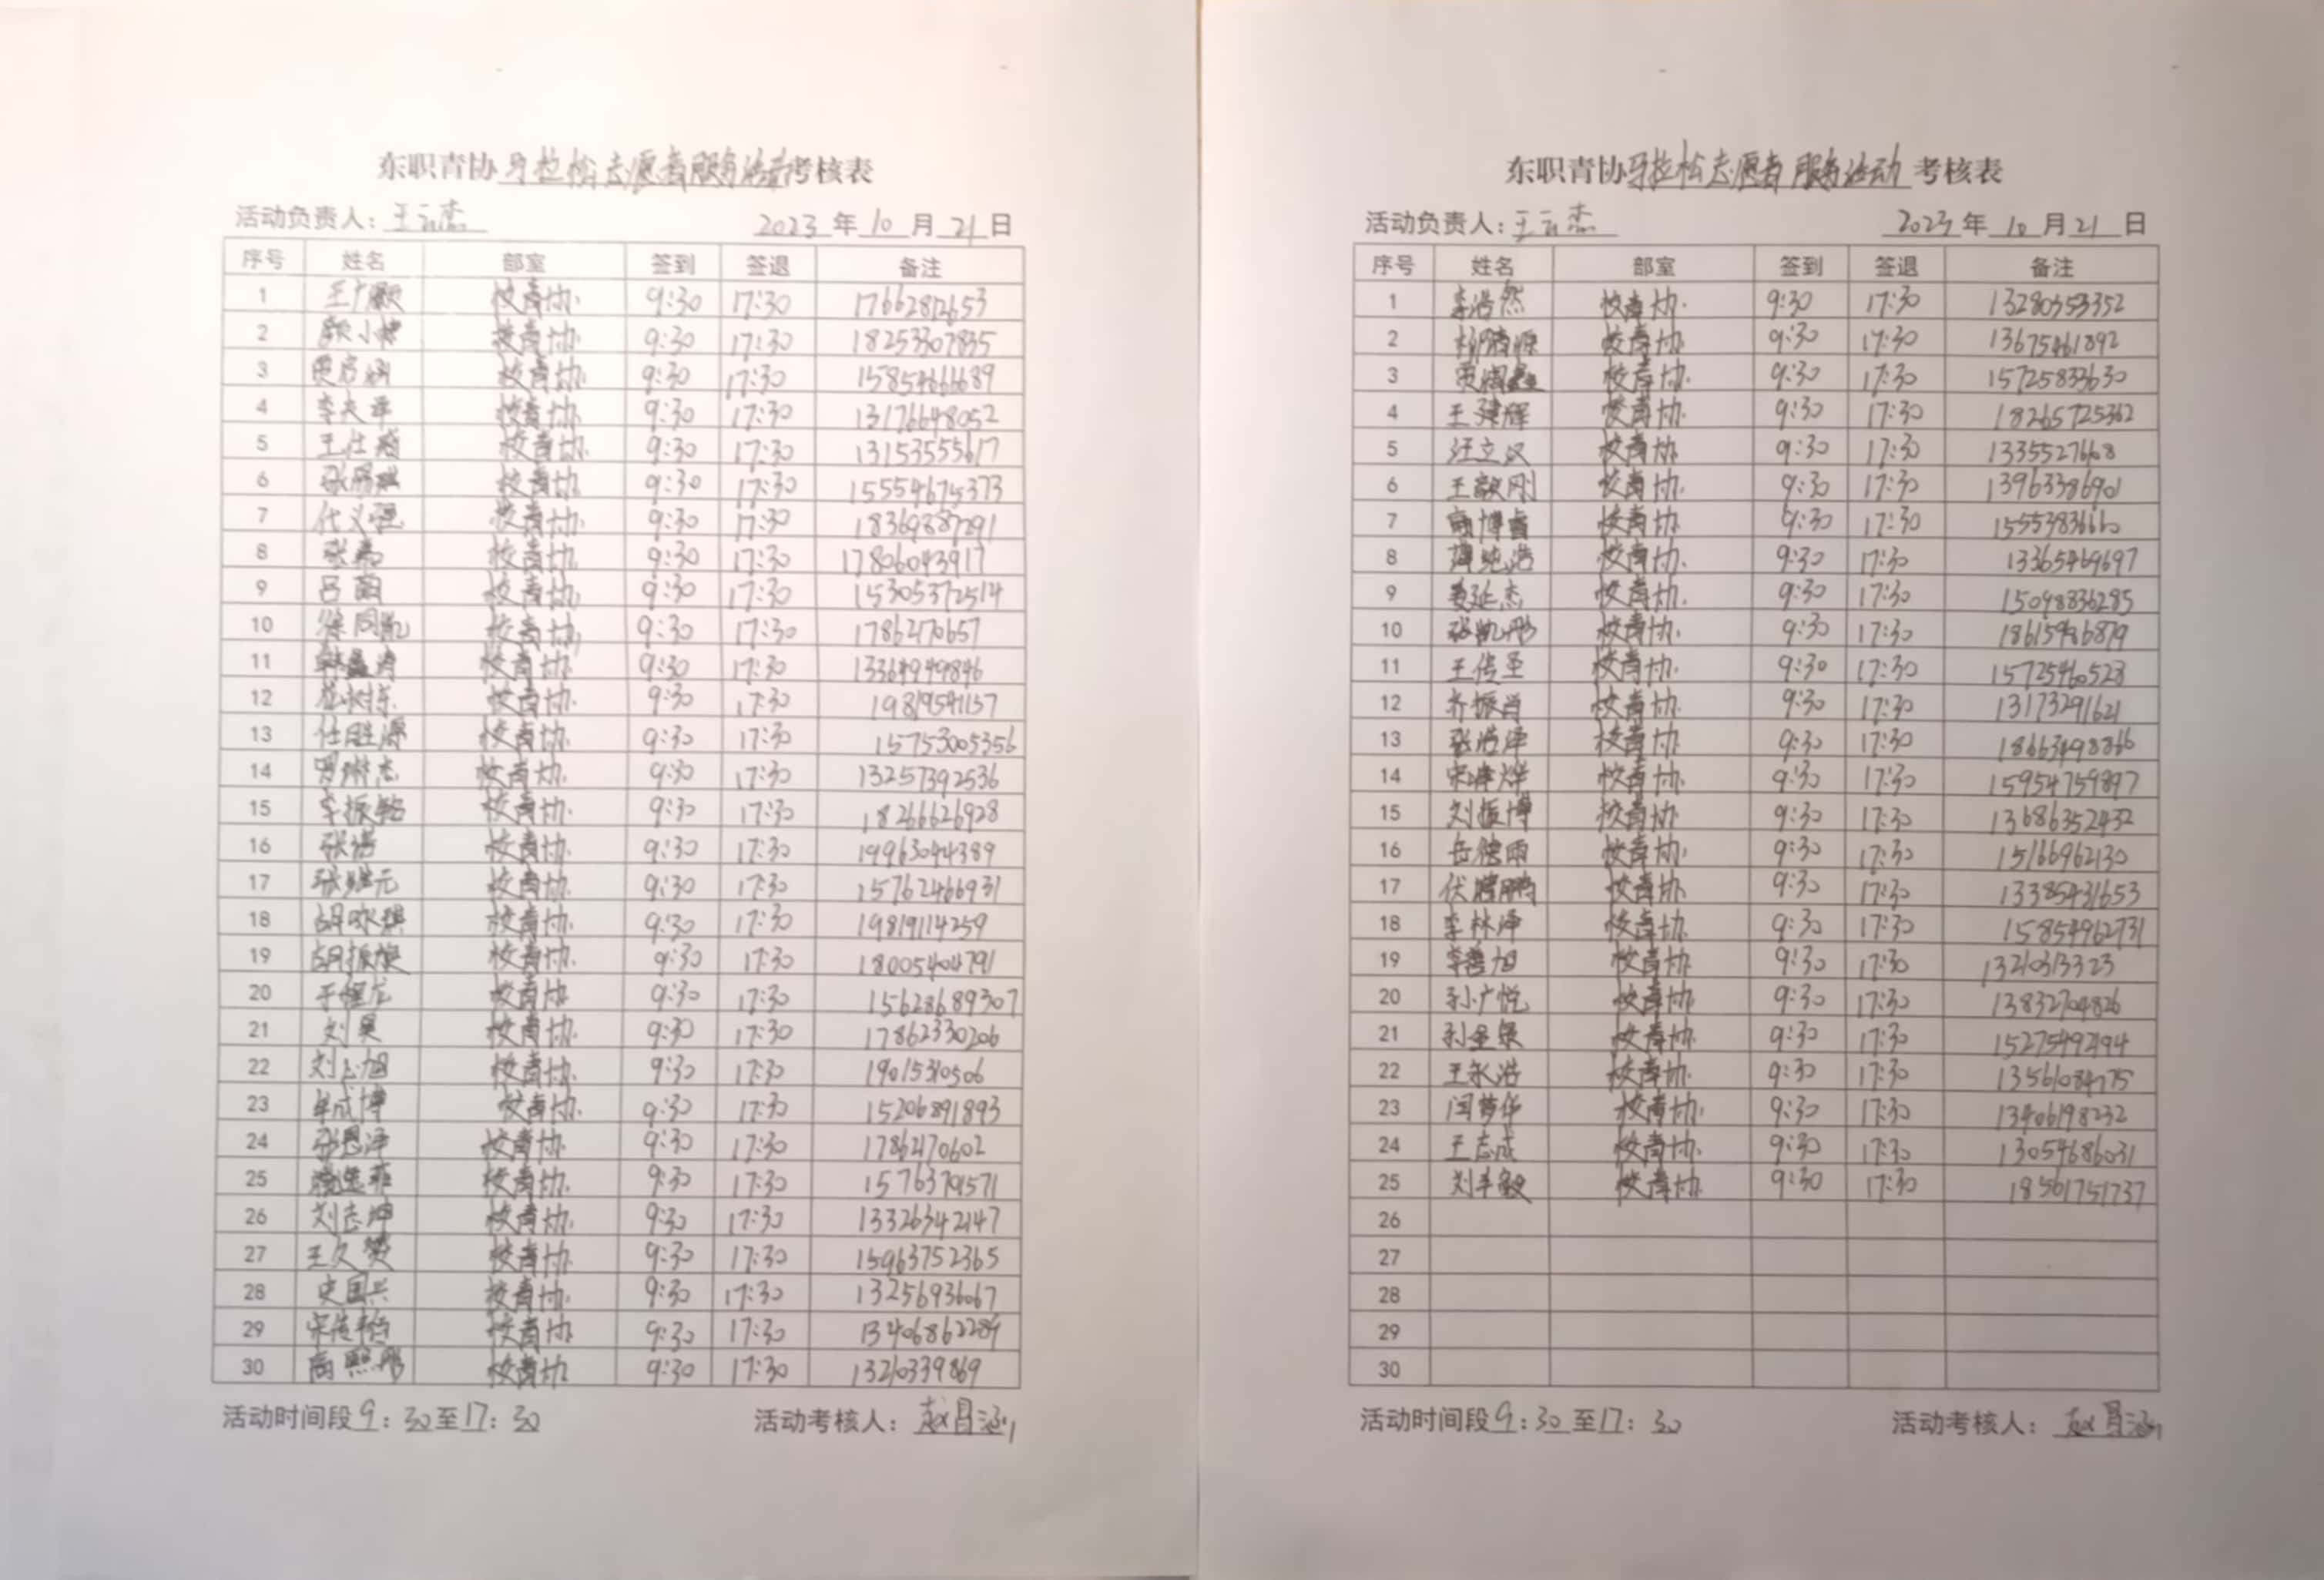 东职青协马拉松志愿者服务活动考核表
活动负责人：王云杰 2023年10月21日
序号 姓名 部室 签到 签退 备注
1 王广颖 校青协 9:30 17:30 17662812653
2 颜小 校青协 9:30 17:30 18253307835
3 校青协 9:30 17:30 15854666689
4 李天泽 校青协 9:30 17:30 13176648052
5 王仕 校青协 9:30 17:30 13153555617
6 校青协 9:30 17:30 15554675373
7 代义强 校青协 9:30 17:30 18369887291
8 张 校青协 9:30 17:30 17806043917
9 吕 校青协 9:30 17:30 15305372514
10 徐同凯 校青协 9:30 17:30 1786270657
11 校青协 9:30 17:30 13364949846
12 校青协 9:30 17:30 19819541157
13 任胜源 校青协 9:30 17:30 15753005356
14 校青协 9:30 17:30 13257392536
15 李振铭 校青协 9:30 17:30 18266626928
16 张 校青协 9:30 17:30 19963044389
17 张 元 校青协 9:30 17:30 15762466931
18 胡 校青协 9:30 17:30 19819114259
19 胡振 校青协 9:30 17:30 18005404791
20 于 龙 校青协 9:30 17:30 15628689307
21 刘昊 校青协 9:30 17:30 17862330206
22 刘志旭 校青协 9:30 17:30 1901530506
23 成博 校青协 9:30 17:30 15206891893
24 恩泽 校青协 9:30 17:30 1786270602
25 校青协 9:30 17:30 15763791571
26 刘志坤 校青协 9:30 17:30 13326342147
27 王久 校青协 9:30 17:30 15963752365
28 史国兴 校青协 9:30 17:30 13256936067
29 宋传 校青协 9:30 17:30 13406862289
30 高熙彤 校青协 9:30 17:30 1320339869
活动时间段9：30至17：30 活动考核人：赵昌涵
东职青协马拉松志愿者服务活动考核表
活动负责人：王云杰 2023年10月21日
序号 姓名 部室 签到 签退 备注
1 李浩然 校青协 9:30 17:30 13280353352
2 校青协 9:30 17:30 13675461892
3 校青协 9:30 17:30 15725833630
4 王建辉 校青协 9:30 17:30 18265725362
5 汪立汉 校青协 9:30 17:30 13355527668
6 王 刚 校青协 9:30 17:30 13963386901
7 博 校青协 9:30 17:30 15553836660
8 纯浩 校青协 9:30 17:30 13365469697
9 姜延杰 校青协 9:30 17:30 15098836285
10 张凯彤 校青协 9:30 17:30 18615486879
11 王传圣 校青协 9:30 17:30 15725460528
12 齐振兴 校青协 9:30 17:30 13173291621
13 张浩泽 校青协 9:30 17:30 18663498866
14 宋 校青协 9:30 17:30 15954759897
15 刘振博 校青协 9:30 17:30 13686352432
16 岳德雨 校青协 9:30 17:30 15166962130
17 伏 鹏 校青协 9:30 17:30 13385431653
18 李林泽 校青协 9:30 17:30 15854962731
19 旭 校青协 9:30 17:30 1320313323
20 孙广悦 校青协 9:30 17:30 13832704826
21 孙圣 校青协 9:30 17:30 15275492494
22 王永浩 校青协 9:30 17:30 13561084775
23 闫梦华 校青协 9:30 17:30 13406198232
24 王志成 校青协 9:30 17:30 13054686031
25 刘丰毅 校青协 9:30 17:30 18561751737
26
27
28
29
30
活动时间段9：30至17：30 活动考核人：赵昌涵